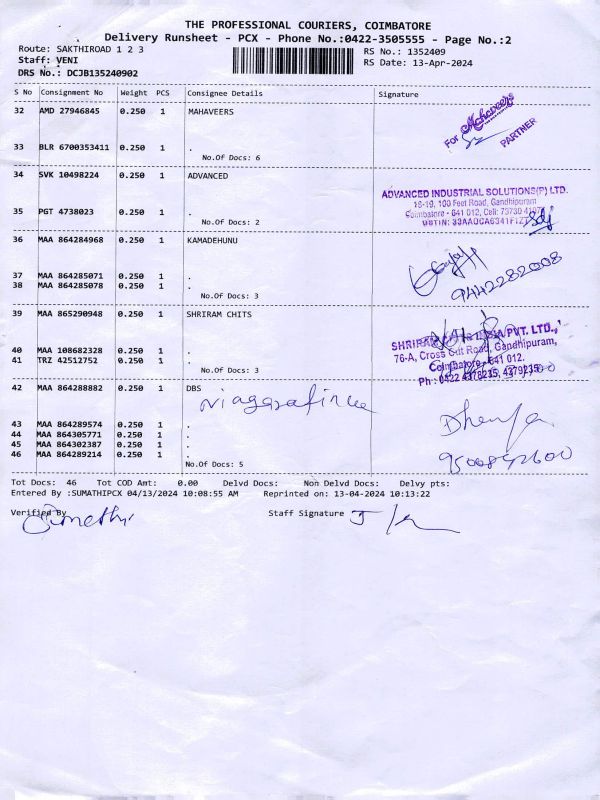 THE PROFESSIONAL COURIERS, COIMBATORE
Delivery Runsheet - PCX - Phone No.:0422-3505555 - Page No.:2
Route: SAKTHIROAD 1 2 3 RS No.: 1352409
Staff: VENI RS Date: 13-Apr-2024
DRS No.: DCJB135240902
S No Consignment No Weight PCS Consignee Details Signature
32 AMD 27946845 0.250 1 MAHAVEERS
For Mahaveers
PARTNER
33 BLR 6700353411 0.250 1 .
No.Of Docs: 6
34 SVK 10498224 0.250 1 ADVANCED
ADVANCED INDUSTRIAL SOLUTIONS(P) LTD.
16-19, 100 Feet Road, Gandhipuram
Coimbatore - 641 012, Cell: 73730 41071
35 PGT 4738023 0.250 1 .
No.Of Docs: 2
36 MAA 864284968 0.250 1 KAMADEHUNU
37 MAA 864285071 0.250 1 .
38 MAA 864285078 0.250 1 .
9442282008
No.Of Docs: 3
39 MAA 865290948 0.250 1 SHRIRAM CHITS
SHRIRAM PVT. LTD.,
76-A, Cross Cut Road, Gandhipuram,
Coimbatore - 641 012.
Ph : 0422 4378235, 4379235
40 MAA 108682328 0.250 1 .
41 TRZ 42512752 0.250 1 .
No.Of Docs: 3
42 MAA 864288882 0.250 1 DBS
43 MAA 864289574 0.250 1 .
44 MAA 864305771 0.250 1 .
45 MAA 864302387 0.250 1 .
46 MAA 864289214 0.250 1 .
No.Of Docs: 5
Tot Docs: 46 Tot COD Amt: 0.00 Delvd Docs: Non Delvd Docs: Delvy pts:
Entered By :SUMATHIPCX 04/13/2024 10:08:55 AM Reprinted on: 13-04-2024 10:13:22
Verified By Staff Signature